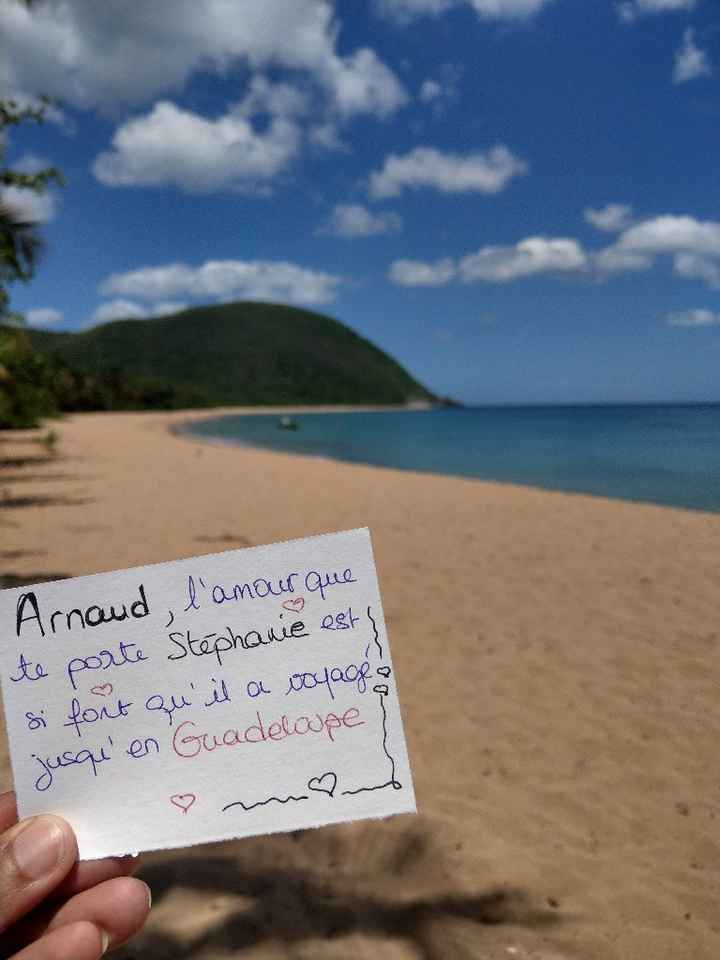 Arnaud, l'amour que
te porte Stéphanie est
si fort qu'il a voyagé
jusqu'en Guadeloupe